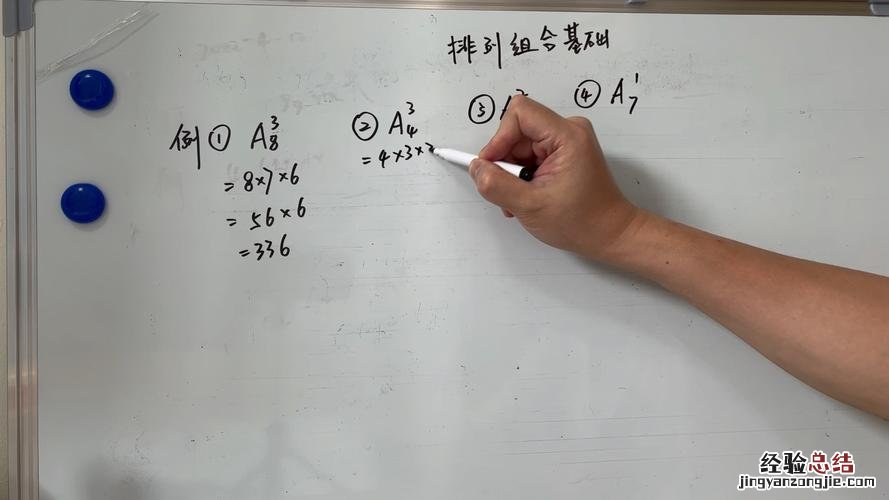 排列组合基础
例 ① A₈³
= 8×7×6
= 56×6
= 336
② A₄³
= 4×3×2
③ A
④ A₇¹
经验总结
jingyanzongjie.com